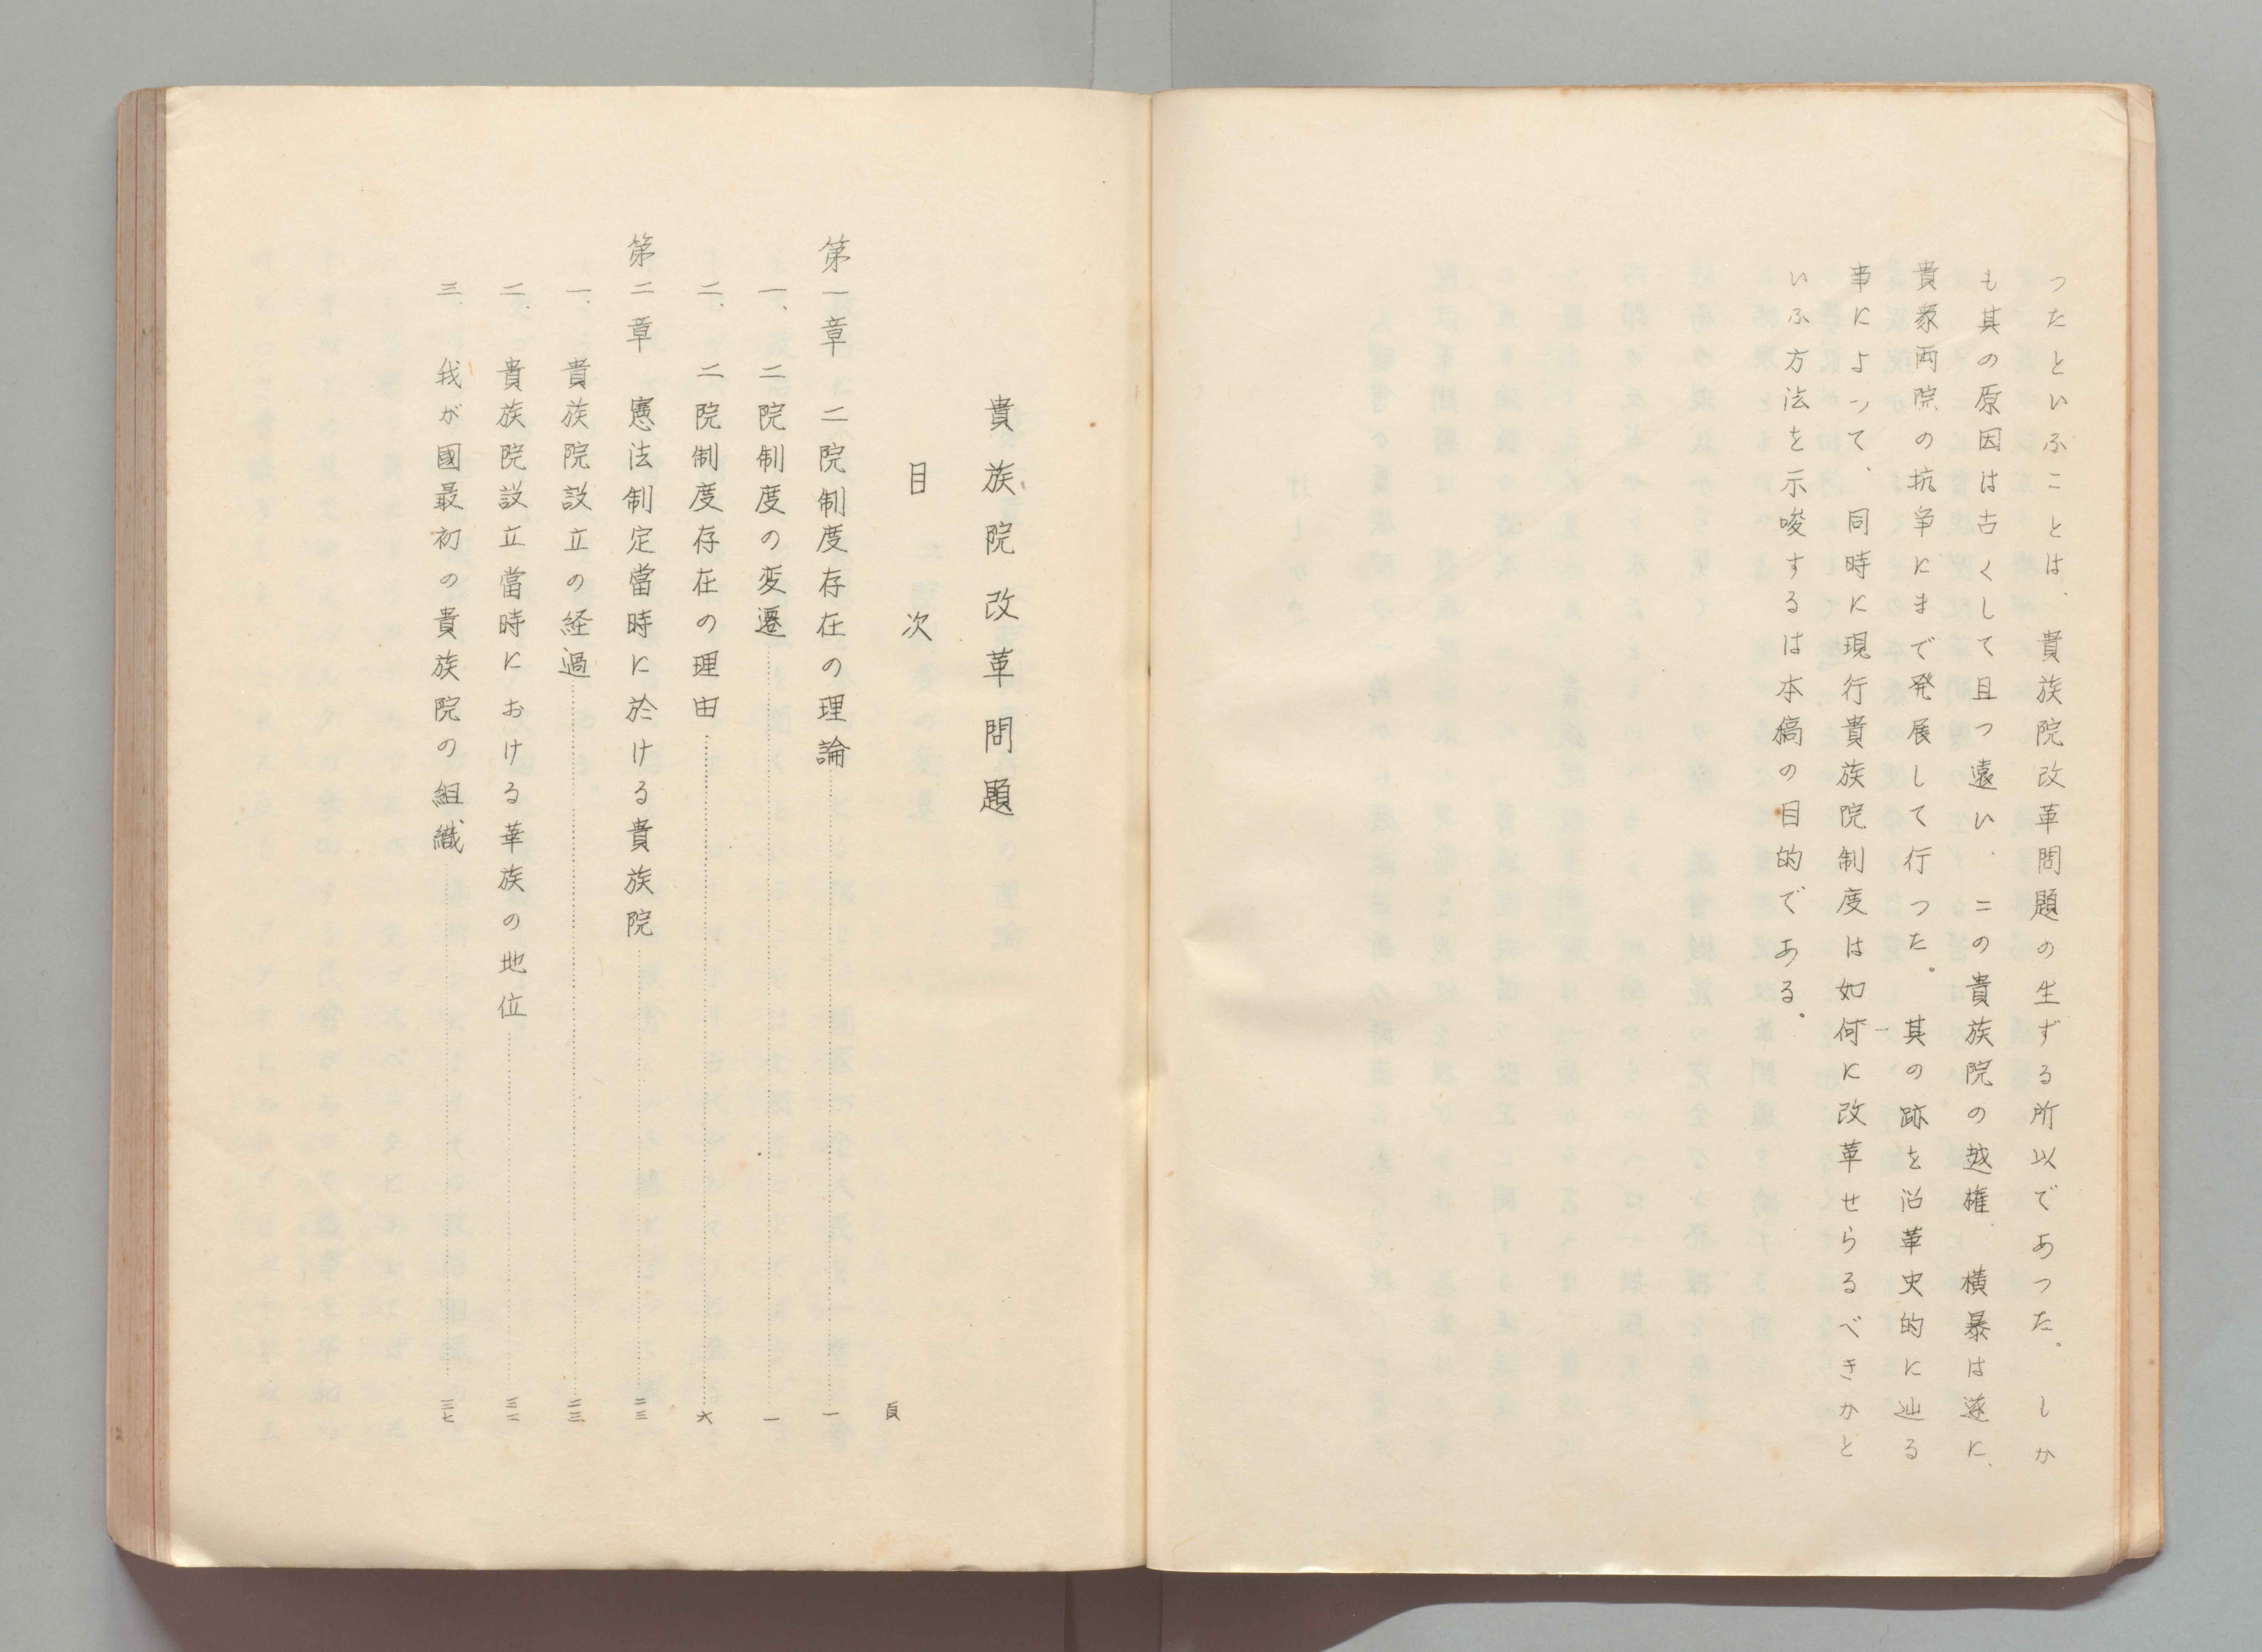 つたといふことは、貴族院改革問題の生ずる所以であつた。しか
も其の原因は古くして且つ遠い、この貴族院の越権、横暴は遂に、
貴衆両院の抗争にまで発展して行つた。其の跡を沿革史的に辿る
事によつて、同時に現行貴族院制度は如何に改革せらるべきかと
いふ方法を示唆するは本稿の目的である。
貴族院改革問題
目次
頁
第一章 二院制度存在の理論 一
一、二院制度の変遷 一
二、二院制度存在の理由 六
第二章 憲法制定當時に於ける貴族院 二三
一、貴族院設立の経過 二三
二、貴族院設立當時における華族の地位 三二
三、我が國最初の貴族院の組織 三七